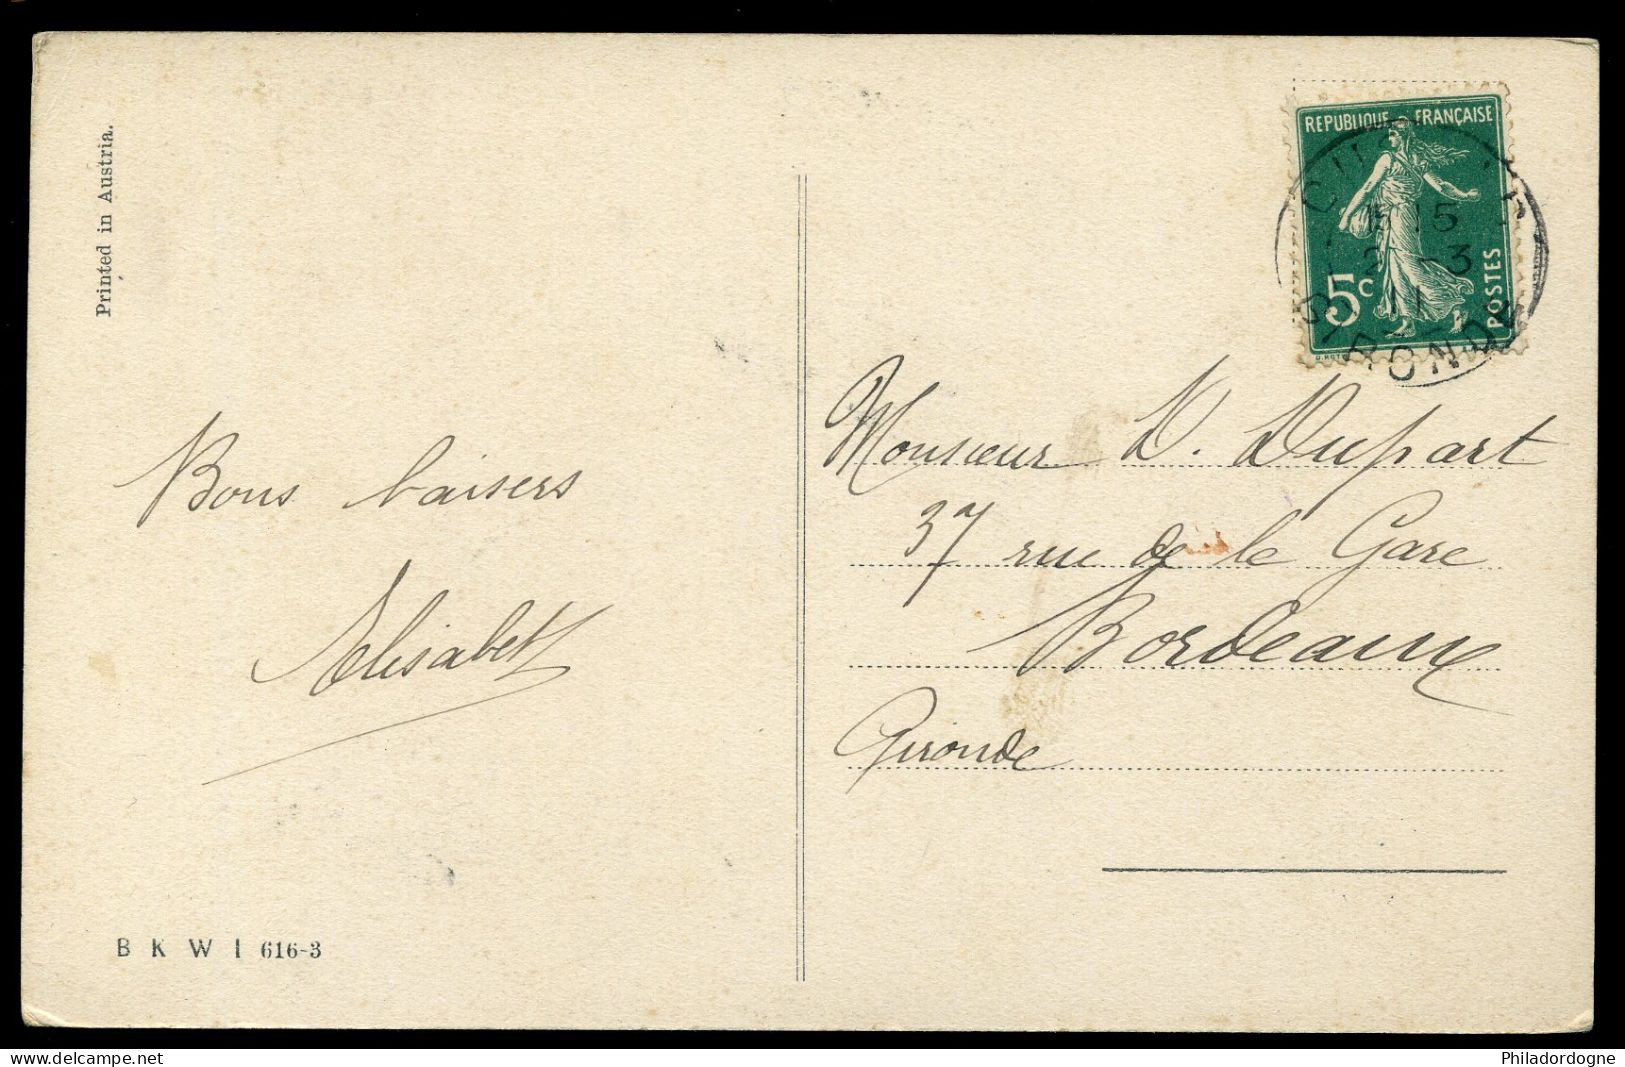 Printed in Austria.
REPUBLIQUE FRANÇAISE
15 15
2 - 3
11
5c
POSTES
GIRONDE
Monsieur D. Dupart
37 rue de la Gare
Bordeaux
Gironde
Bons baisers
Elisabeth
B K W I 616-3
www.delcampe.net
Philadordogne